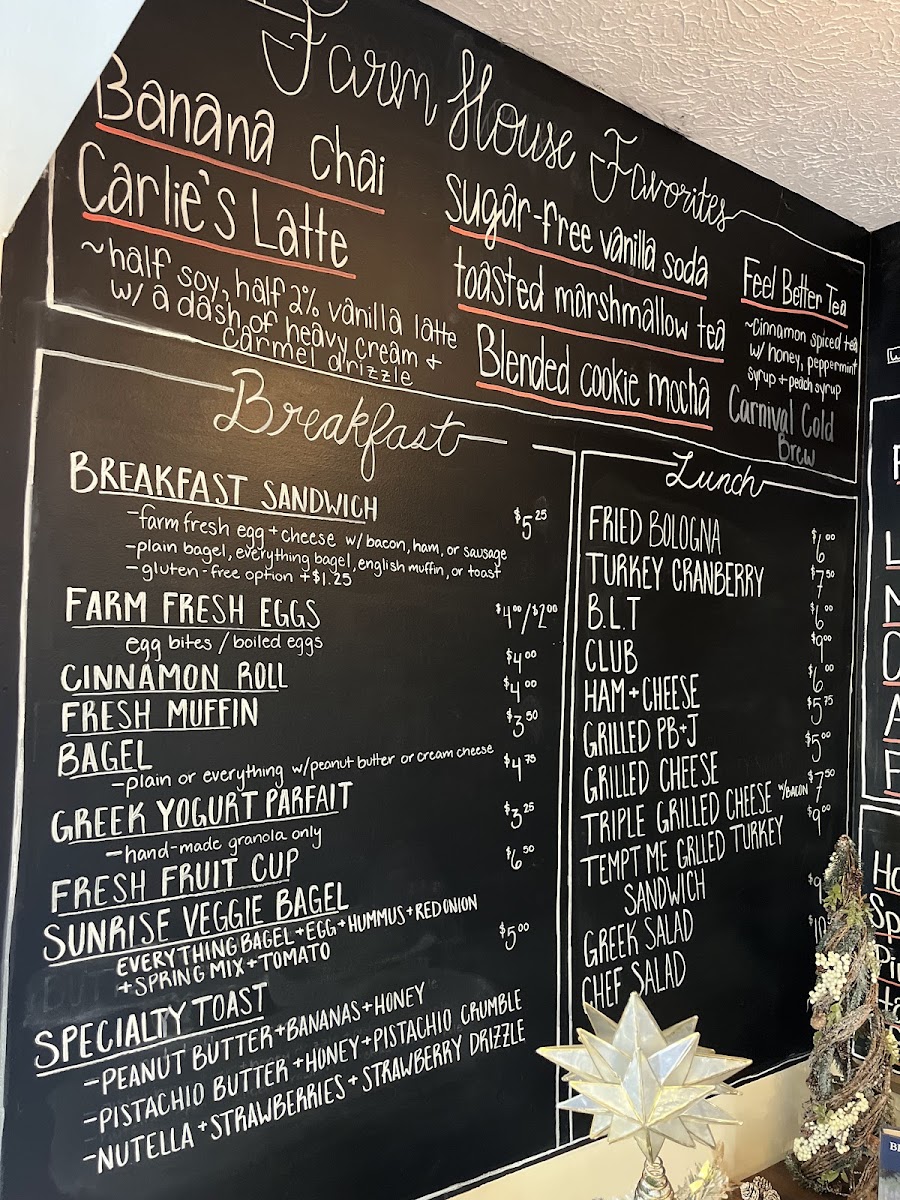 Farm House Favorites
Banana chai
Carlie's Latte
~half soy, half 2% vanilla latte
w/ a dash of heavy cream +
carmel drizzle
sugar-free vanilla soda
toasted marshmallow tea
Blended cookie mocha
Feel Better Tea
~cinnamon spiced tea
w/ honey, peppermint
syrup + peach syrup
Carnival Cold
Brew
Breakfast
BREAKFAST SANDWICH $5.25
-farm fresh egg + cheese w/ bacon, ham, or sausage
-plain bagel, everything bagel, english muffin, or toast
-gluten-free option +$1.25
FARM FRESH EGGS $4.00/$2.00
egg bites / boiled eggs
CINNAMON ROLL $4.00
FRESH MUFFIN $4.00
BAGEL $3.50
-plain or everything w/peanut butter or cream cheese
GREEK YOGURT PARFAIT $4.75
-hand-made granola only
FRESH FRUIT CUP $3.25
SUNRISE VEGGIE BAGEL $6.50
EVERYTHING BAGEL + EGG + HUMMUS + RED ONION
+ SPRING MIX + TOMATO
SPECIALTY TOAST $5.00
-PEANUT BUTTER + BANANAS + HONEY
-PISTACHIO BUTTER + HONEY + PISTACHIO CRUMBLE
-NUTELLA + STRAWBERRIES + STRAWBERRY DRIZZLE
Lunch
FRIED BOLOGNA $6.00
TURKEY CRANBERRY $7.50
B.L.T $6.00
CLUB $9.00
HAM + CHEESE $6.00
GRILLED PB+J $5.75
GRILLED CHEESE $5.00
TRIPLE GRILLED CHEESE W/BACON $7.50
TEMPT ME GRLLED TURKEY $9.00
SANDWICH
GREEK SALAD $9
CHEF SALAD $10